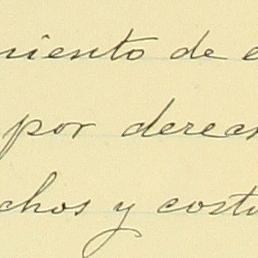 niento de e
por derecn
chos y costu